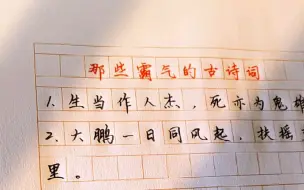 那些霸气的古诗词
1.生当作人杰，死亦为鬼雄
2.大鹏一日同风起，扶摇
里。